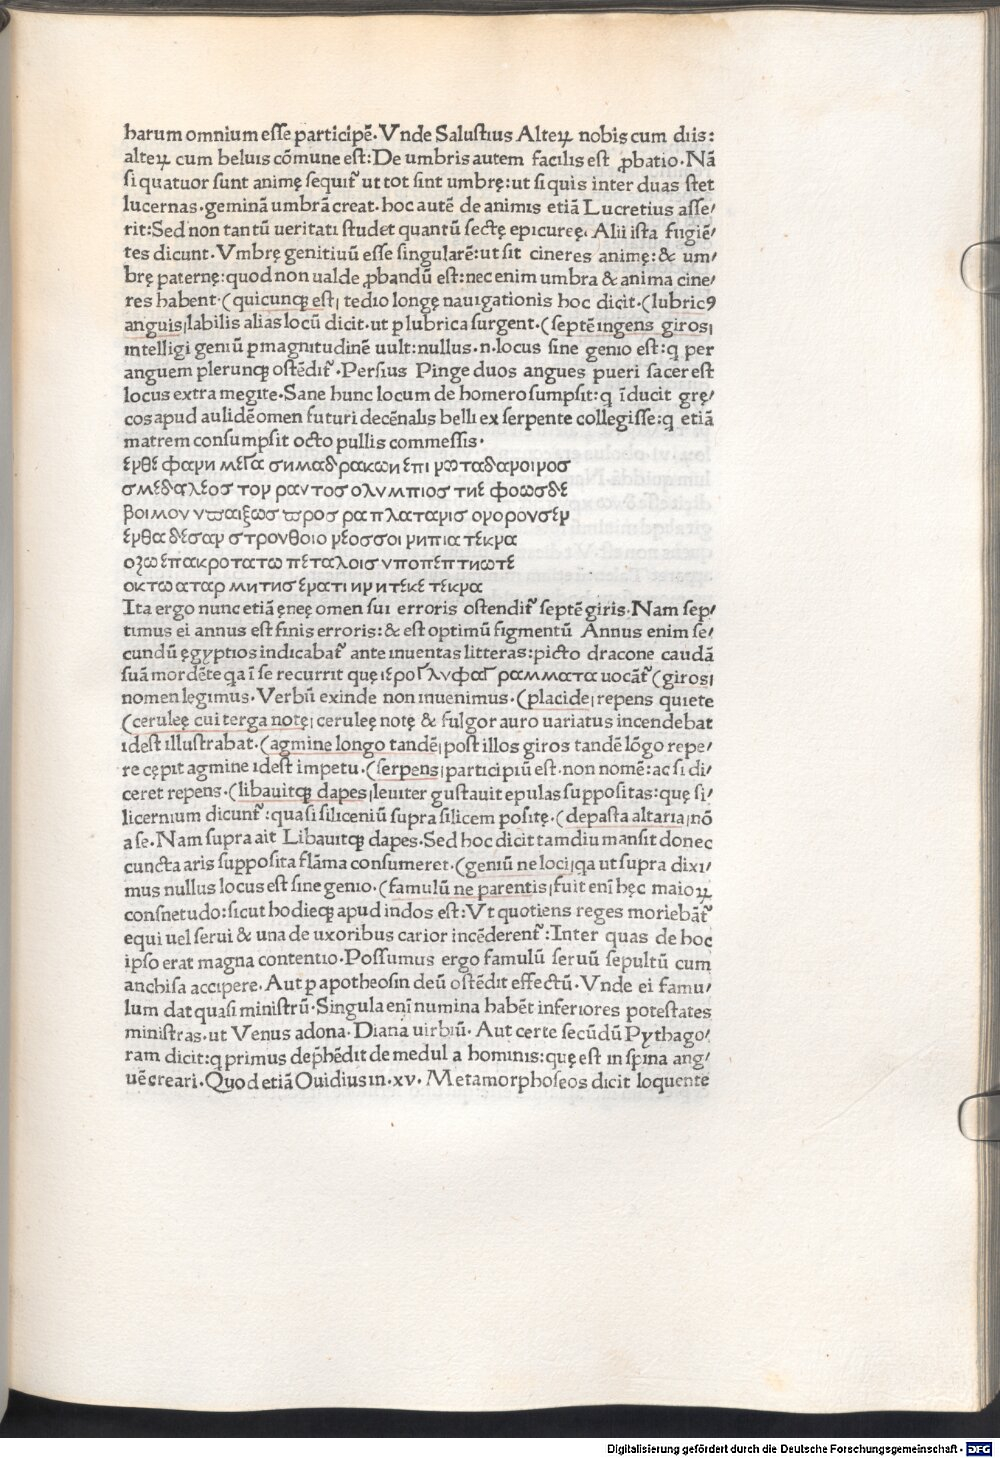 harum omnium esse participē. Vnde Salustius Alteꝝ nobis cum diis:
alteꝝ cum beluis cōmune est: De umbris autem facilis est ꝓbatio. Nā
si quatuor sunt animę sequit᷑ ut tot sint umbrę: ut si quis inter duas stet
lucernas. geminā umbrā creat. hoc autē de animis etiā Lucretius asse/
rit: Sed non tantū ueritati studet quantū sectę epicureę. Alii ista fugiē/
tes dicunt. Vmbrę genitiuū esse singularē: ut sit cineres animę: & um/
brę paternę: quod non ualde ꝓbandū est: nec enim umbra & anima cine/
res habent. (quicunqꝫ est| tedio longę nauigationis hoc dicit. (lubricꝯ
anguis| labilis alias locū dicit. ut ꝑ lubrica surgent. (septē ingens giros|
intelligi geniū ꝑ magnitudinē uult: nullus .n. locus sine genio est: q per
anguem plerunqꝫ ostēdit᷑. Persius Pinge duos angues pueri sacer est
locus extra megite. Sane hunc locum de homero sumpsit: q īducit grę/
cos apud aulidē omen futuri decēnalis belli ex serpente collegisse: q etiā
matrem consumpsit octo pullis commessis.
ενθε φανη μεγα σημα δρακωη επι νωταδανοινοσ
σμεδαλεοσ τον ραντοσ ολυμπιοσ τηε φοωσδε
βοιμον υπαιξωσ προσ ρα πλατανισ ονορουσεν
ενθα δεσαν στρουθοιο νεοσσοι νηπια τεκνα
οζω επακροτατω πεταλοισ υποπεπτηωτε
οκτω αταρ μητησ ενατι ην η τεκε τεκνα
Ita ergo nunc etiā ęneę omen sui erroris ostendit᷑ septē giris. Nam sep/
timus ei annus est finis erroris: & est optimū figmentū Annus enim se/
cundū ęgyptios indicabat᷑ ante inuentas litteras: picto dracone caudā
suā mordēte qa ī se recurrit quę ιερογλυφα γραμματα uocāt᷑ (giros|
nomen legimus. Verbū exinde non inuenimus. (placide| repens quiete
(ceruleę cui terga notę| ceruleę notę & fulgor auro uariatus incendebat
idest illustrabat. (agmine longo tandē| post illos giros tandē lōgo repe/
re cępit agmine idest impetu. (serpens| participiū est. non nomē: ac si di/
ceret repens. (libauitqꝫ dapes| leuiter gustauit epulas suppositas: quę si/
licernium dicunt᷑: quasi siliceniū supra silicem positę. (depasta altaria| nō
a se. Nam supra ait Libauitqꝫ dapes. Sed hoc dicit tamdiu mansit donec
cuncta aris supposita flāma consumeret. (geniū ne loci| qa ut supra dixi/
mus nullus locus est sine genio. (famulū ne parentis| fuit enī hęc maioꝝ
consnetudo: sicut hodieqꝫ apud indos est: Vt quotiens reges moriebāt᷑
equi uel serui & una de uxoribus carior incēderent᷑: Inter quas de hoc
ipso erat magna contentio. Possumus ergo famulū seruū sepultū cum
anchisa accipere. Aut ꝑ apotheosin deū ostēdit effectū. Vnde ei famu/
lum dat quasi ministrū. Singula enī numina habēt inferiores potestates
ministras. ut Venus adona. Diana uirbiū. Aut certe secūdū Pythago/
ram dicit: q primus dep̄hēdit de medul a hominis: quę est in spina ang/
uē creari. Quod etiā Ouidius in .xv. Metamorphoseos dicit loquente
Digitalisierung gefördert durch die Deutsche Forschungsgemeinschaft - DFG